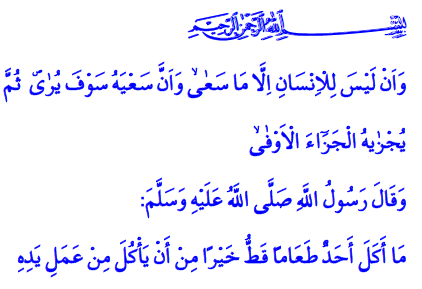 بسم الله الرحمن الرحيم
وَاَنْ لَيْسَ لِلْاِنْسَانِ اِلَّا مَا سَعٰىۙ وَاَنَّ سَعْيَهُ سَوْفَ يُرٰىۖ ثُمَّ
يُجْزٰيهُ الْجَزَٓاءَ الْاَوْفٰىۙ
وَقَالَ رَسُولُ اللَّهِ صَلَّى اللَّهُ عَلَيْهِ وَسَلَّمَ:
مَا أَكَلَ أَحَدٌ طَعَامًا قَطُّ خَيْرًا مِنْ أَنْ يَأْكُلَ مِنْ عَمَلِ يَدِهِ